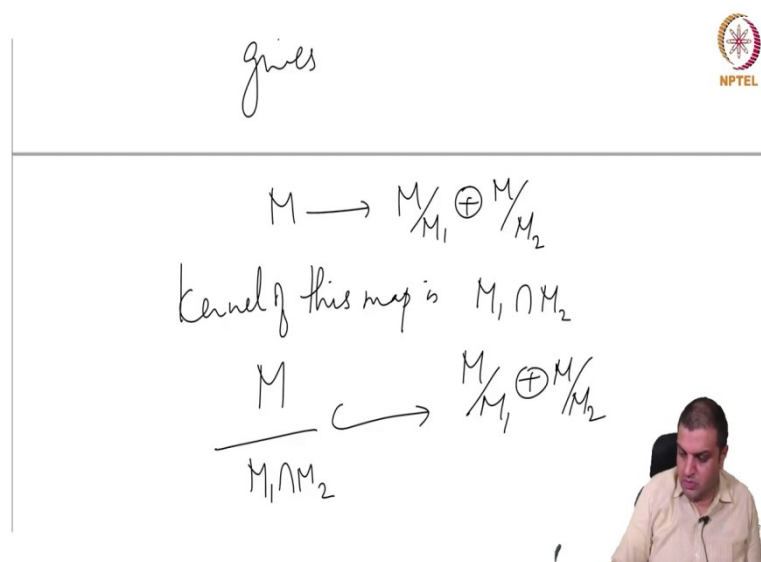 gives
NPTEL
M ⟶ M/M₁ ⊕ M/M₂
Kernel of this map is M₁ ∩ M₂
M/(M₁∩M₂) ↪ M/M₁ ⊕ M/M₂